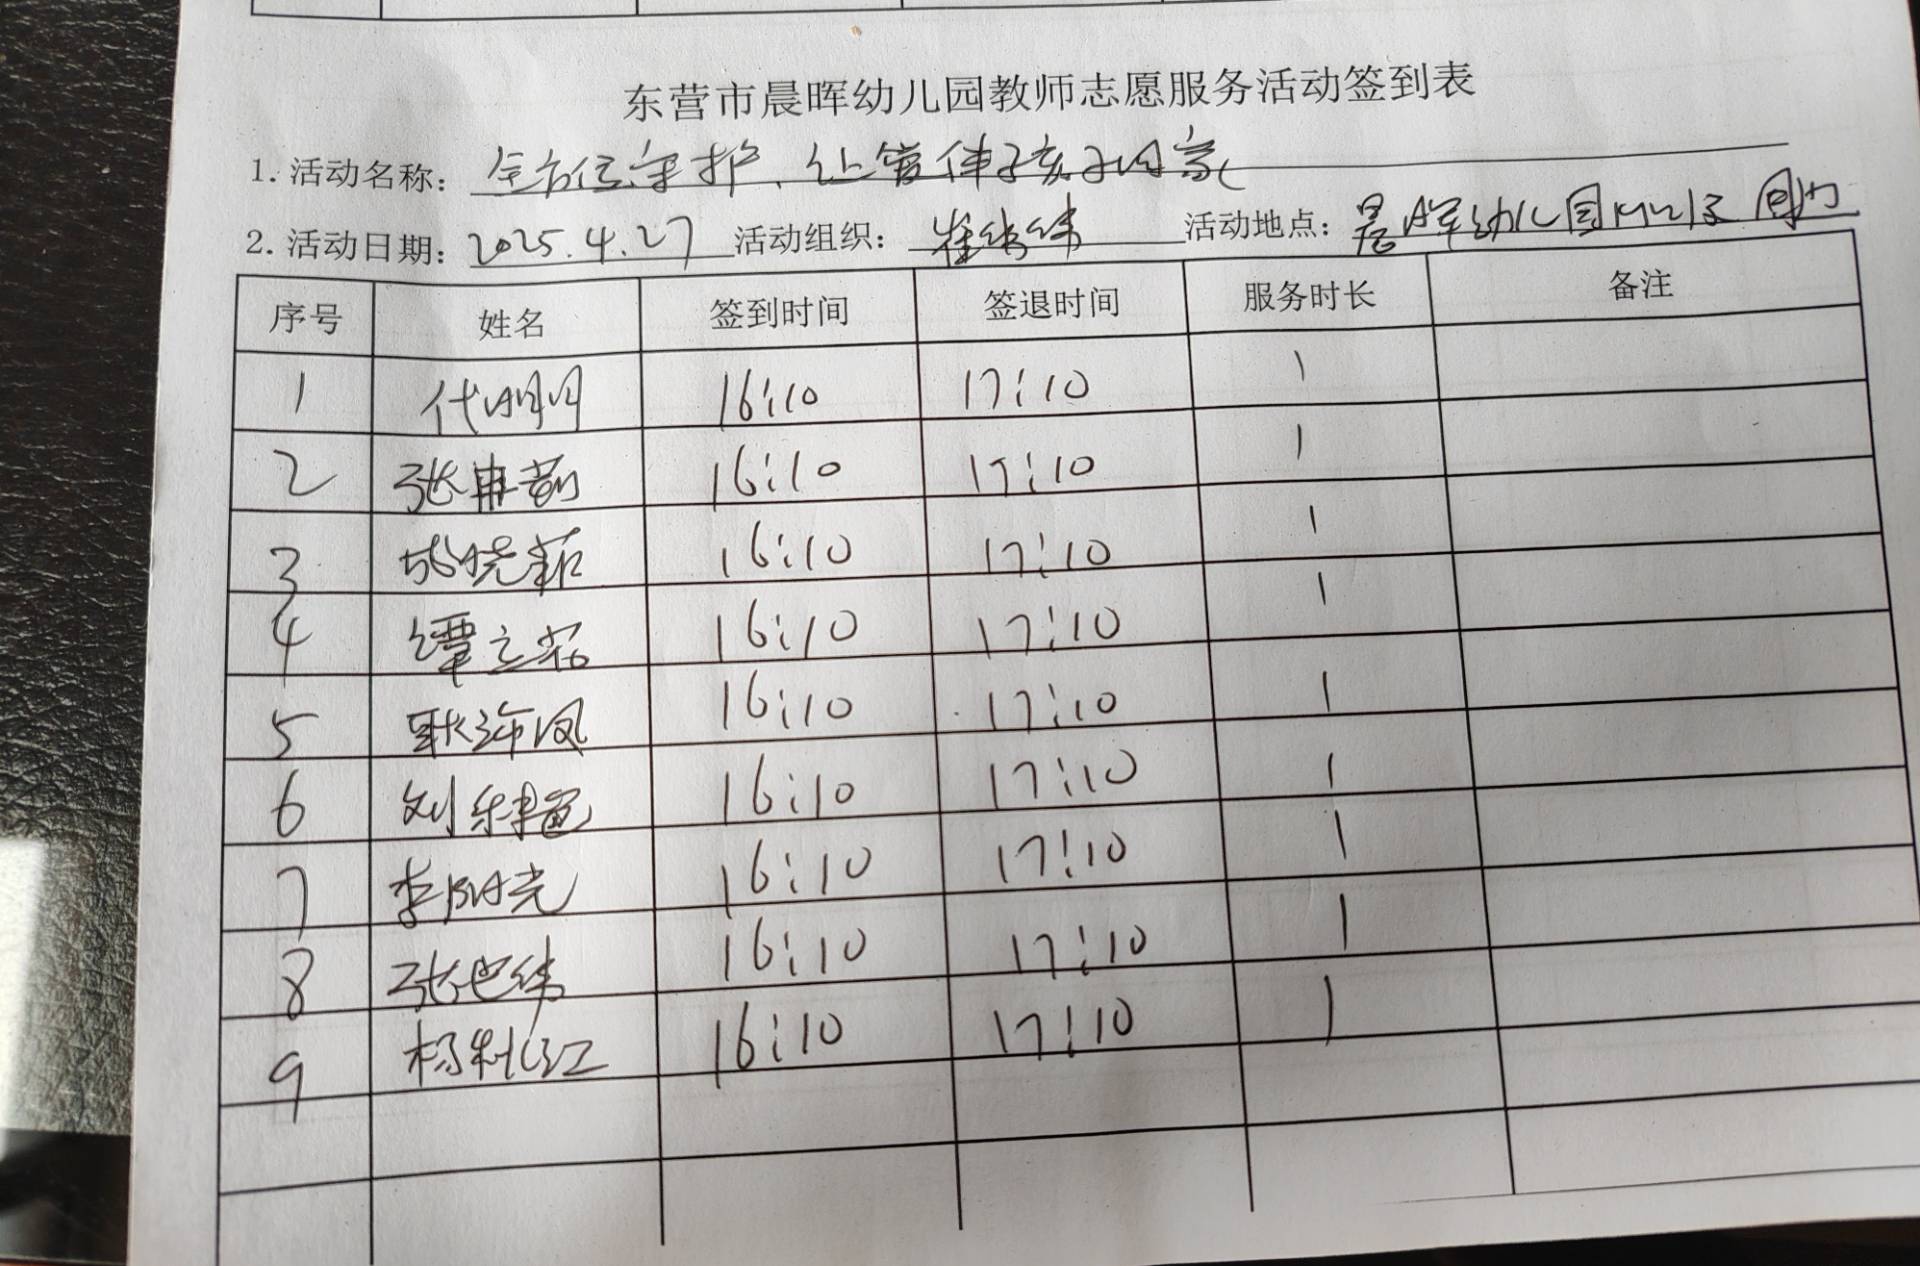 东营市晨晖幼儿园教师志愿服务活动签到表
1. 活动名称： 全方位守护、让爱伴孩子回家
2. 活动日期： 2025.4.27 活动组织： 崔 活动地点： 晨晖幼儿园 周边
序号 姓名 签到时间 签退时间 服务时长 备注
1 代明月 16:10 17:10 1
2 张冉 16:10 17:10 1
3 晓 16:10 17:10 1
4 谭立 16:10 17:10 1
5 耿海凤 16:10 17:10 1
6 刘 16:10 17:10 1
7 李阳光 16:10 17:10 1
8 张艳伟 16:10 17:10 1
9 杨利江 16:10 17:10 1